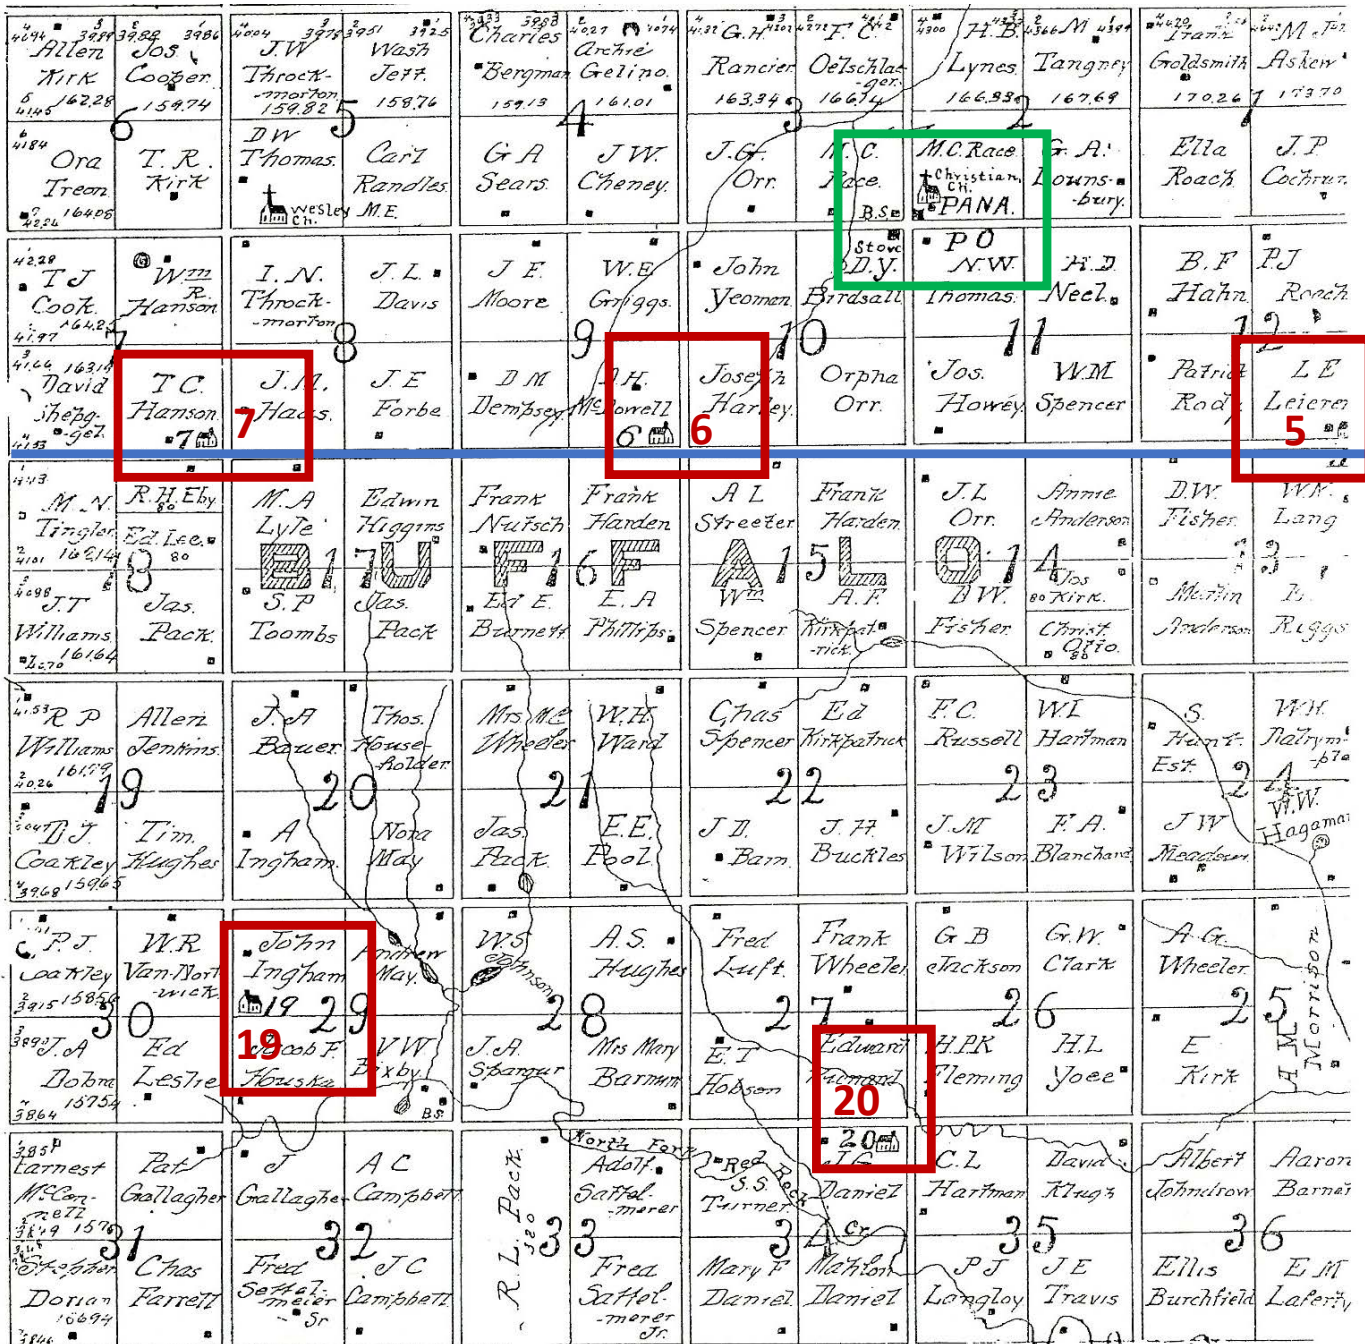 Allen
Kirk
162.28
Jos
Cooper
159.74
6
J.W
Throck-
-morton
159.82
Wash
Jeff.
158.76
5
Charles
Bergman
159.13
Archie
Gelino.
161.01
4
G.H.
Rancier
163.34
F.C.
Oelschla-
-ger.
166.14
3
H.B.
Lynes
166.93
M
Tangney
167.69
2
Franz
Goldsmith
170.26
M.
Askew
173.70
1
4184
Ora
Treon
164.05
T. R.
Kirk
D W
Thomas.
Wesley M.E.
Ch.
Carl
Randles
G A
Sears.
J W.
Cheney.
J.G.
Orr.
M. C.
Race.
B.S.
M.C. Race
Christian
CH.
PANA.
G. A.
Louns-
-bury.
Ella
Roach
J. P
Cochran.
42.28
T J
Cook.
164.2
41.97
Wm
R.
Hanson
I. N.
Throck-
-morton
J. L.
Davis
J E.
Moore
W.E
Griggs.
John
Yeoman
Store
D.Y.
Birdsall
P O
N.W.
Thomas.
H.D.
Neel.
B. F
Hahn
P J
Roach
7
8
9
10
11
12
41.66
David
Shepp-
-gel
T C.
Hanson
7
7
J. M.
Haas.
J. E
Forbe
D M
Dempsey
D.H.
McDowell
6
6
Joseph
Harley
Orpha
Orr.
Jos.
Howey
W.M
Spencer
Patrick
Rody
L E
Leierer
5
M. N.
Tingler
162.14
R.H. Eby
80
Ed. Lee.
80
M. A
Lyle
Edwin
Higgins
Frank
Nutsch
Frank
Harden
A L
Streeter
Frank
Harden.
J. L
Orr.
Annie
Anderson
D.W.
Fisher.
W.N.
Lang
18
17
16
15
14
13
BUFFALO
4098
J.T
Williams
161.64
Jas.
Pack.
S. P
Toombs
Jas.
Pack
Ed E.
Burnett
E. A
Phillips.
Wm
Spencer
A. F.
Kirkpat-
-rick.
D W.
Fisher
Jos
80 Kirk.
Christ.
Otto.
80
Martin
Anderson
L.
Riggs
41.53
R P
Williams
161.79
40.26
Allen
Jenkins.
J. A
Bauer
Thos.
House-
-holder
Mrs Mc
Wheeler
W.H.
Ward
Chas
Spencer
Ed
Kirkpatrick
F. C.
Russell
W.I
Hartman
S.
Hunt.
Est.
W.H.
Dalrym-
-ple
19
20
21
22
23
24
D.J.
Coakley
159.65
39.68
Tim.
Hughes
A
Ingham.
Nora
May
Jas.
Pack.
E.E.
Pool.
J D.
Bam.
J. H.
Buckles
J.M
Wilson
F. A.
Blanchard
J W
Meadows
W.W.
Hagaman
P. J.
Coakley
158.56
39.15
W.R
Van-Nort
-wick.
John
Ingham
19
Andrew
May.
W.S
Johnson
A. S.
Hughes
Fred
Luft.
Frank
Wheeler
G. B
Jackson
G.W.
Clark
A. G.
Wheeler.
A M
Morrison
30
29
28
27
26
25
3890
J. A
Dobra
157.54
38.64
Ed
Leslie
19
Jacob F.
Houska
V W
Bixby
B.S.
J. A.
Spangur
Mrs Mary
Barnum
E. T
Hobson
Edward
20
H.P.K
Fleming
H. L
Yoee
E
Kirk
Earnest
McCon-
-nell
157
Pat
Gallagher
J
Gallagher
A C
Campbell
R. L. Pack
320
North Fork
Adolf.
Sattel-
-merer
Red Rock Cr.
S.S.
Turner
20
J G
Daniel
C. L
Hartman
David
Klugh
Albert
Johndrow
Aaron
Barner
31
32
33
34
35
36
Stephen
Dorian
156.94
3846
Chas
Farrell
Fred
Settel-
-meier
Sr
J C
Campbell
Fred
Sattel-
-merer
Jr.
Mary F
Daniel.
Mahlon
Daniel
P J
Langloy
J E
Travis
Ellis
Burchfield
E M
Laferty